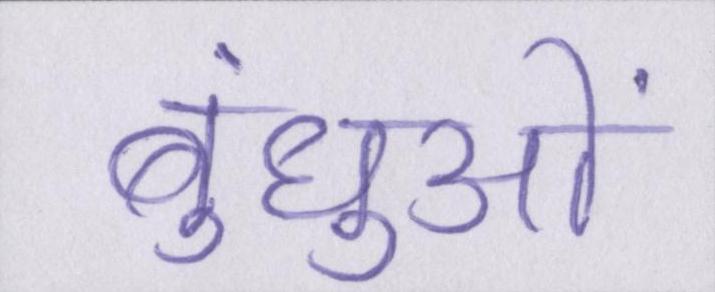 बुंधुओं